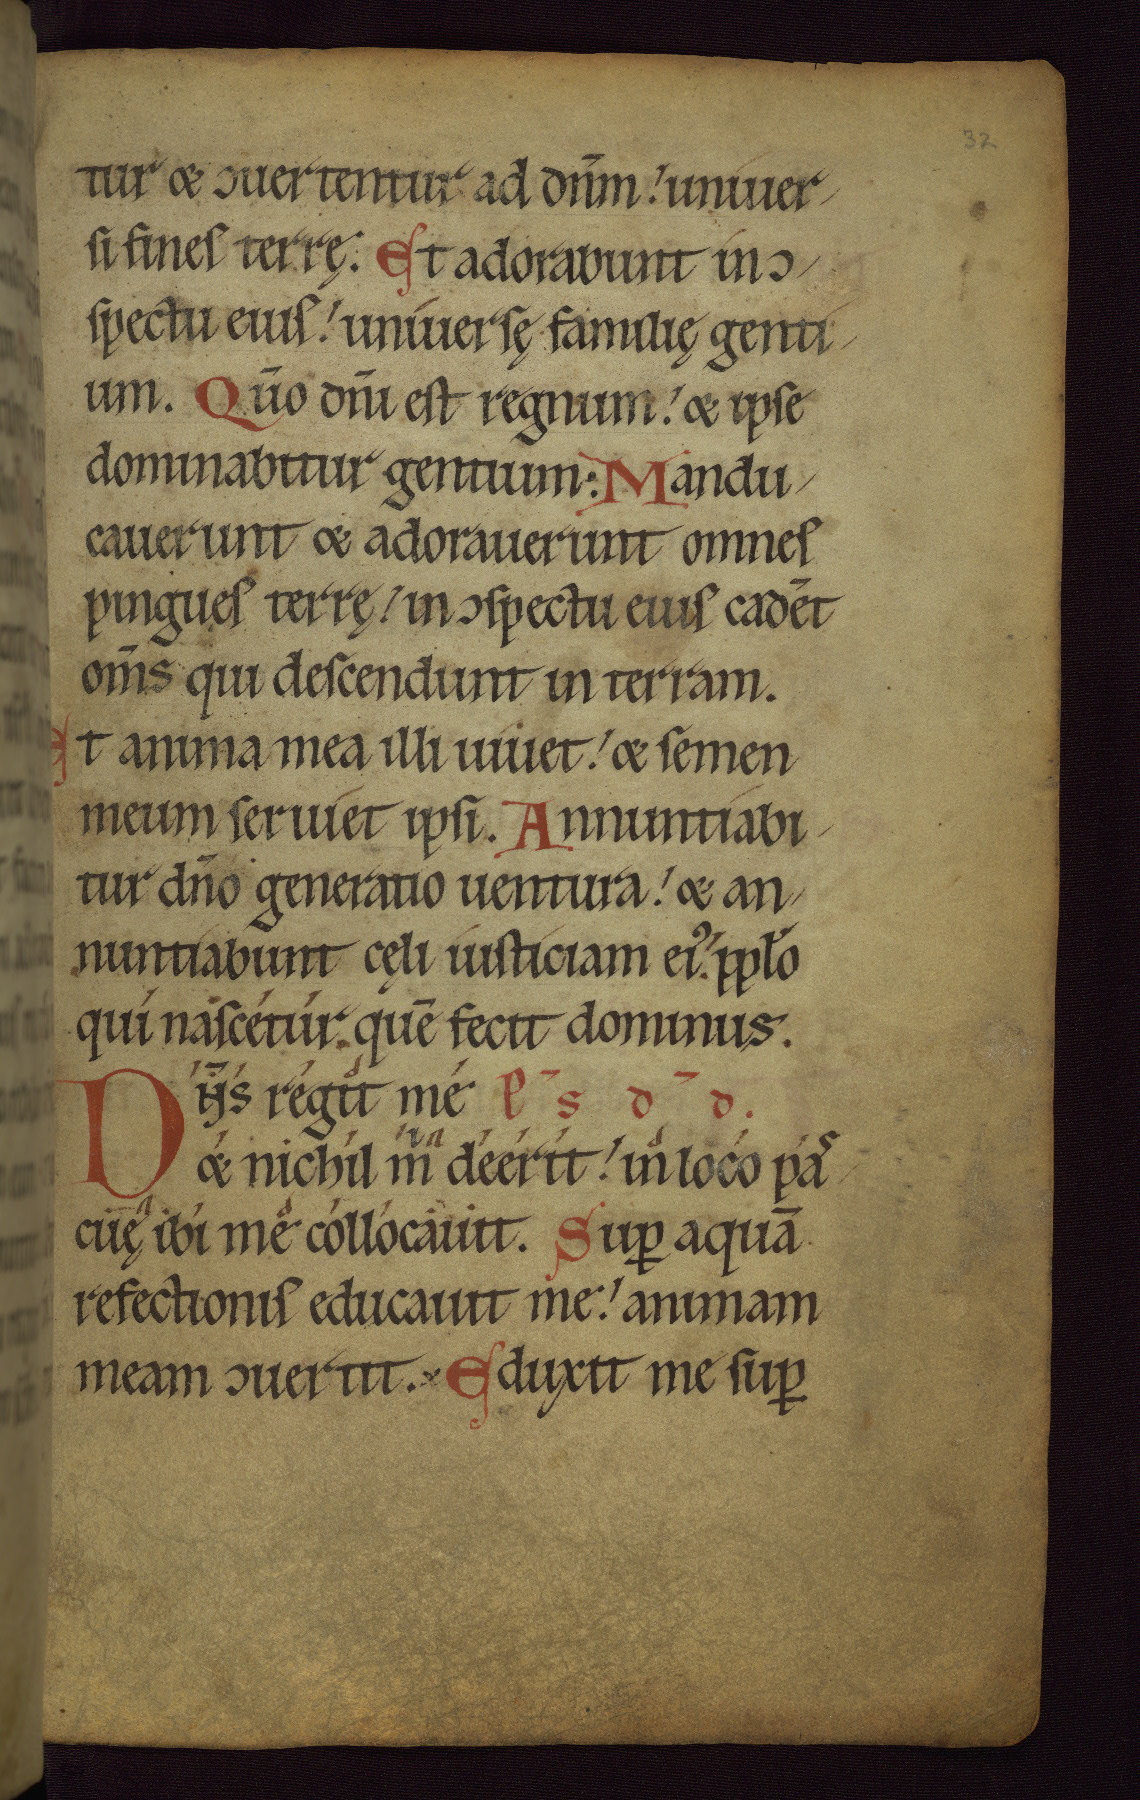 32
tur & ↄuertentur ad dn̄m! uniuer-
si fines terrę. Et adorabunt in ↄ-
spectu eius! uniuersę familię genti-
um. Qūo dn̄i est regnum! & ipse
dominabitur gentium: Mandu-
cauerunt & adorauerunt omnes
pingues terrę! in ↄspectu eius cadēt
om̄s qui descendunt in terram.
Et anima mea illi uiuet! & semen
meum seruiet ipsi. Annuntiabi-
tur dn̄o generatio uentura! & an-
nuntiabunt cęli iusticiam eiꝰ! ppl̄o
qui nascetur quē fecit dominus.
Dn̄s regit me P̄ s d̄ d.
& nichil m deerit! in loco pas-
cuę ibi me collocauit. Suꝑ aquā
refectionis educauit me! animam
meam ↄuertit. Eduxit me suꝑ